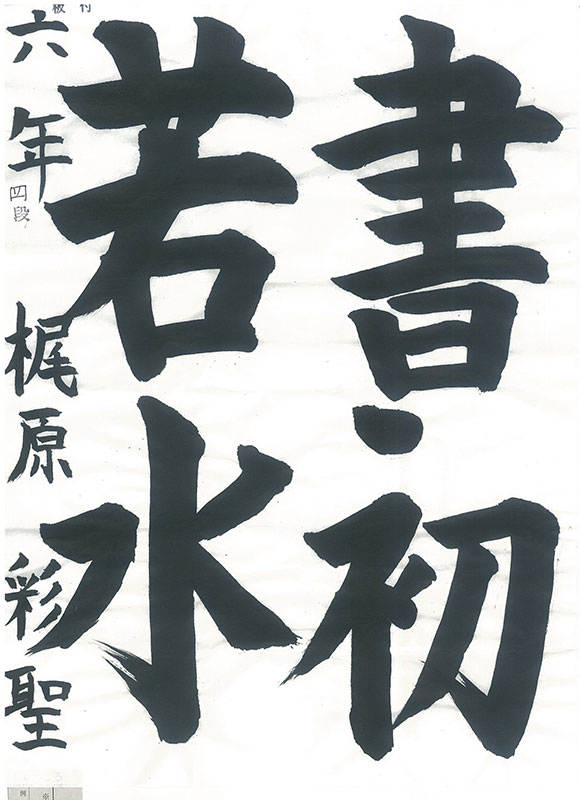 書初
若水
六年 梶原 彩聖
四段